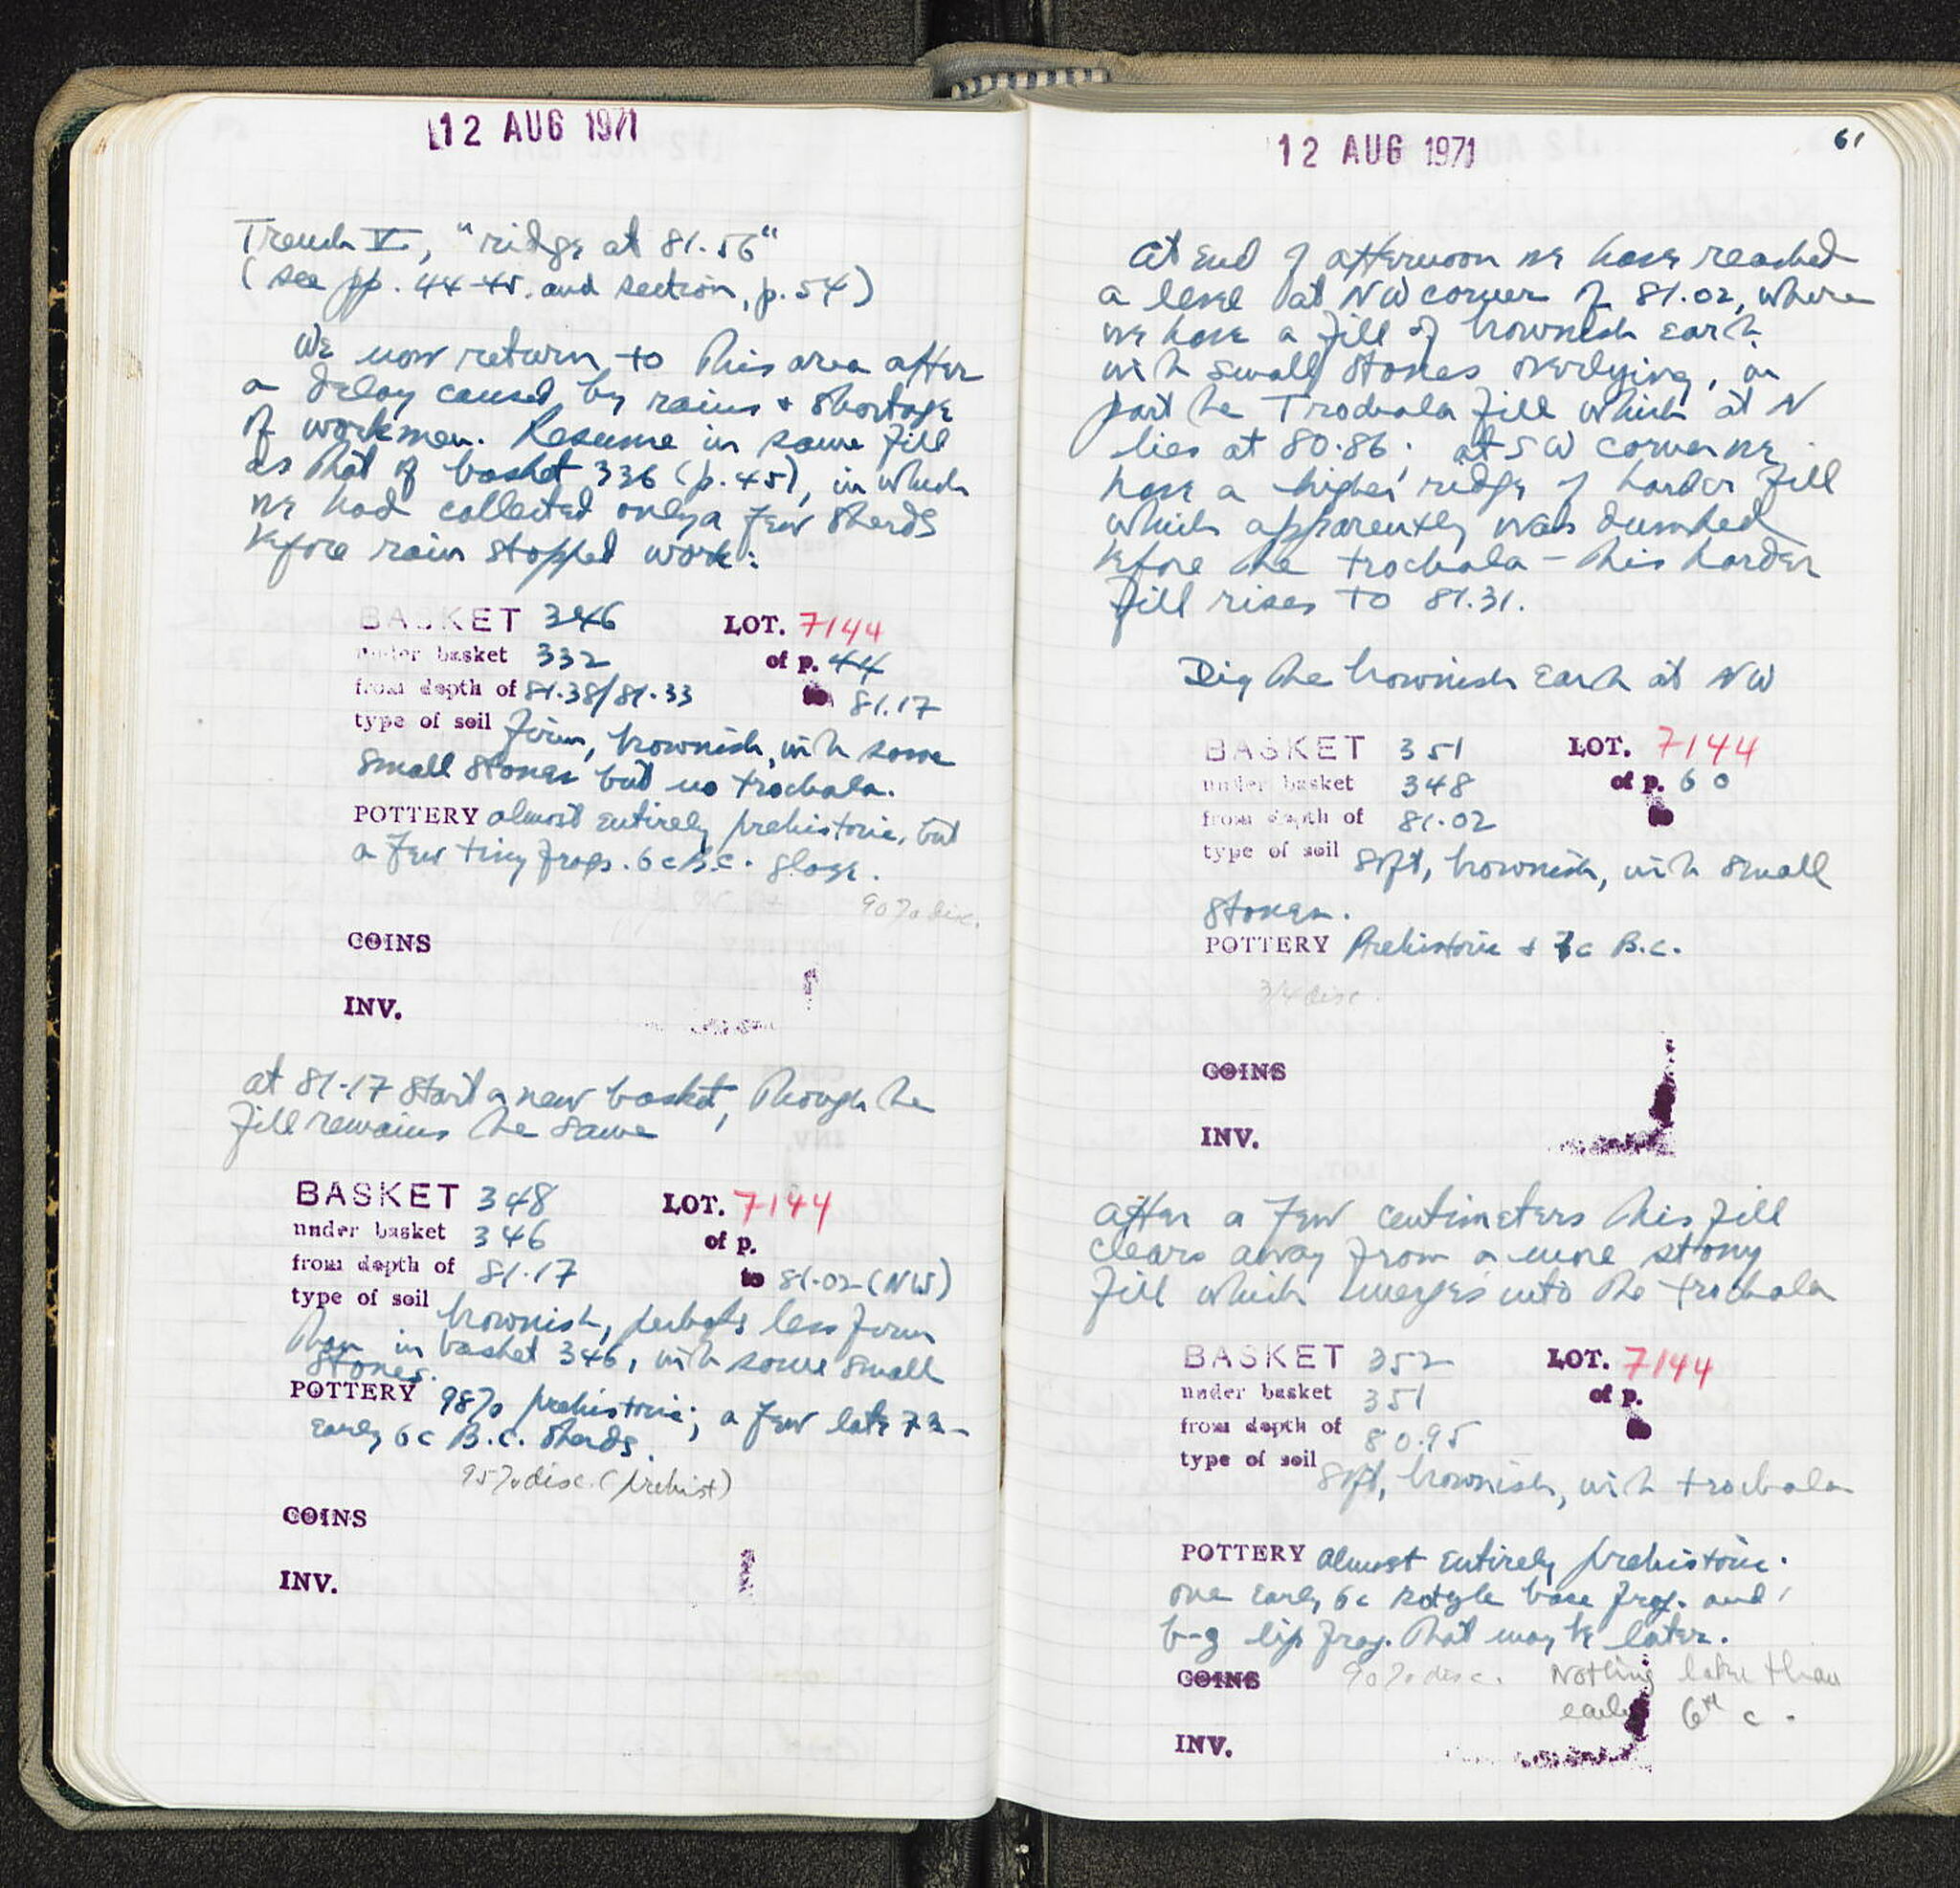 12 AUG 1971
Trench V, "ridge at 81.56"
(see pp. 44-45. and section, p. 54)
We now return to this area after
a delay caused by rains + shortage
of workmen. Resume in same fill
as that of basket 336 (p. 45), in which
we had collected only a few sherds
before rain stopped work:
BASKET 346 LOT. 7144
under basket 332 of p. 44
from depth of 81.38/81.33 to 81.17
type of soil firm, brownish, with some
small stones but no trochala.
POTTERY almost entirely prehistoric, but
a few tiny frags. 6c B.C. glaze.
90% disc.
COINS
INV.
at 81.17 start a new basket, though the
fill remains the same
BASKET 348 LOT. 7144
under basket 346 of p.
from depth of 81.17 to 81.02 (NW)
type of soil brownish, perhaps less firm
than in basket 346, with some small
stones.
POTTERY 98% prehistoric; a few late 7th-
early 6c B.C. sherds.
95% disc. (prehist)
COINS
INV.
12 AUG 1971
61
At end of afternoon we have reached
a level at NW corner of 81.02, where
we have a fill of brownish earth
with small stones overlying, in
part the Trochala fill which at N
lies at 80.86; at SW corner we
have a higher ridge of harder fill
which apparently was dumped
before the trochala - this harder
fill rises to 81.31.
Dig the brownish earth at NW
BASKET 351 LOT. 7144
under basket 348 of p. 60
from depth of 81.02
type of soil soft, brownish, with small
stones.
POTTERY Prehistoric + 7c B.C.
3/4 disc.
COINS
INV.
After a few centimeters this fill
clears away from a more stony
fill which merges into the trochala
BASKET 352 LOT. 7144
under basket 351 of p.
from depth of 80.95
type of soil soft, brownish, with trochala
POTTERY almost entirely prehistoric.
one early 6c kotyle base frag. and 1
b-g lip frag. that may be later.
COINS 90% disc. Nothing later than
early 6th c.
INV.